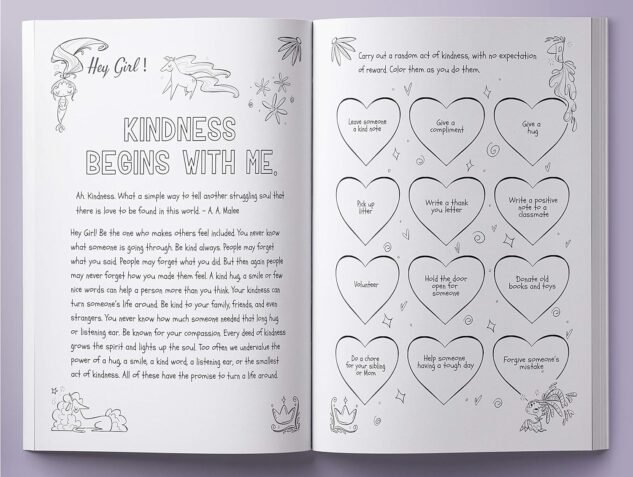 Hey Girl !
KINDNESS
BEGINS WITH ME.
Ah. Kindness. What a simple way to tell another struggling soul that
there is love to be found in this world. - A. A. Malee
Hey Girl! Be the one who makes others feel included. You never know
what someone is going through. Be kind always. People may forget
what you said. People may forget what you did. But then again people
may never forget how you made them feel. A kind hug, a smile or few
nice words can help a person more than you think. Your kindness can
turn someone's life around. Be kind to your family, friends, and even
strangers. You never know how much someone needed that long hug
or listening ear. Be known for your compassion. Every deed of kindness
grows the spirit and lights up the soul. Too often we undervalue the
power of a hug, a smile, a kind word, a listening ear, or the smallest
act of kindness. All of these have the promise to turn a life around.
Carry out a random act of kindness, with no expectation
of reward. Color them as you do them.
Leave someone
a kind note
Give a
compliment
Give a
hug
Pick up
litter
Write a thank
you letter
Write a positive
note to a
classmate
Volunteer
Hold the door
open for
someone
Donate old
books and toys
Do a chore
for your sibling
or Mom
Help someone
having a tough day
Forgive someone's
mistake